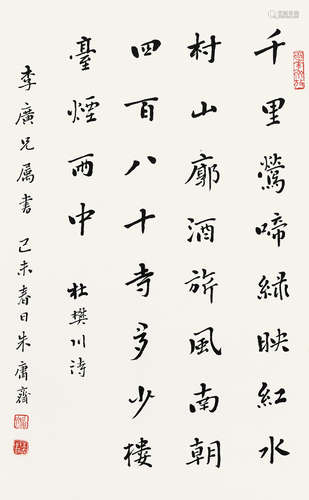 千里鶯啼綠映紅水
村山廓酒旂風南朝
四百八十寺多少樓
臺煙雨中 杜樊川詩
李廣兄属書 己未春日朱庸齋